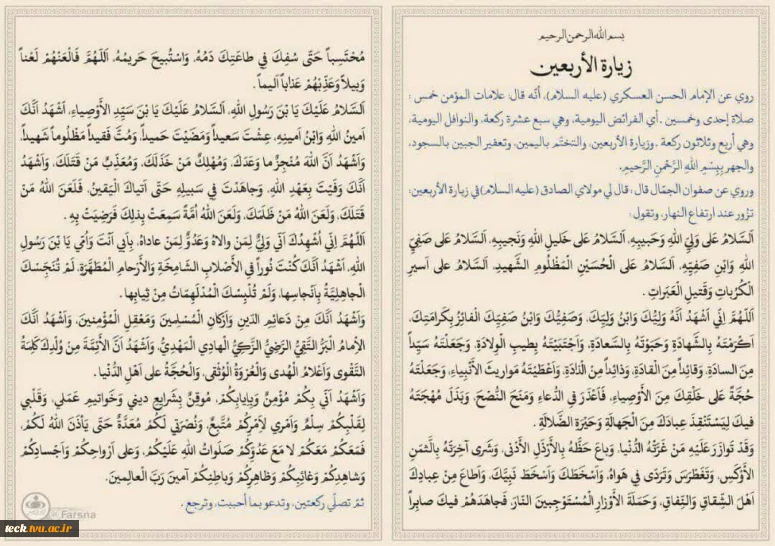 بسم الله الرحمن الرحيم
زيارة الأربعين
روي عن الإمام الحسن العسكري (عليه السلام)، أنّه قال: علامات المؤمن خمس :
صلاة إحدى وخمسين . أي الفرائض اليومية، وهي سبع عشرة ركعة، والنوافل اليومية،
وهي أربع وثلاثون ركعة . وزيارة الأربعين، والتختّم باليمين، وتعفير الجبين بالسجود،
والجهر بِبِسْمِ اللهِ الرَّحْمنِ الرَّحيمِ.
وروي عن صفوان الجمّال قال: قال لي مولاي الصادق (عليه السلام) في زيارة الأربعين:
تزور عند ارتفاع النهار، وتقول:
اَلسَّلامُ عَلى وَلِيِّ اللهِ وَحَبيبِهِ، اَلسَّلامُ عَلى خَليلِ اللهِ وَنَجيبِهِ، اَلسَّلامُ عَلى صَفِيِّ
اللهِ وَابْنِ صَفِيِّهِ، اَلسَّلامُ عَلى الْحُسَيْنِ الْمَظْلُومِ الشَّهيدِ، اَلسَّلامُ على اَسيرِ
الْكُرُباتِ وَقَتيلِ الْعَبَراتِ .
اَللّهُمَّ اِنّي اَشْهَدُ اَنَّهُ وَلِيُّكَ وَابْنُ وَلِيِّكَ، وَصَفِيُّكَ وَابْنُ صَفِيِّكَ الْفائِزُ بِكَرامَتِكَ،
اَكْرَمْتَهُ بِالشَّهادَةِ وَحَبَوْتَهُ بِالسَّعادَةِ، وَاَجْتَبَيْتَهُ بِطيبِ الْوِلادَةِ، وَجَعَلْتَهُ سَيِّداً
مِنَ السادَةِ، وَقائِداً مِنَ الْقادَةِ، وَذائِداً مِنَ الْذادَةِ، وَاَعْطَيْتَهُ مَواريثَ الاَْنْبِياءِ، وَجَعَلْتَهُ
حُجَّةً عَلى خَلْقِكَ مِنَ الاَْوْصِياءِ، فَاَعْذَرَ فىِ الدُّعاءِ وَمَنَحَ النُّصْحَ، وَبَذَلَ مُهْجَتَهُ
فيكَ لِيَسْتَنْقِذَ عِبادَكَ مِنَ الْجَهالَةِ وَحَيْرَةِ الضَّلالَةِ .
وَقَدْ تَوازَرَ عَلَيْهِ مَنْ غَرَّتْهُ الدُّنْيا، وَباعَ حَظَّهُ بِالاَْرْذَلِ الاَْدْنى، وَشَرى آخِرَتَهُ بِالَّثمَنِ
الاَْوْكَسِ، وَتَغَطْرَسَ وَتَرَدّى فِي هَواهُ، وَاَسْخَطَكَ وَاَسْخَطَ نَبِيَّكَ، وَاَطاعَ مِنْ عِبادِكَ
اَهْلَ الشِّقاقِ وَالنِّفاقِ، وَحَمَلَةَ الاَْوْزارِ الْمُسْتَوْجِبينَ النّارَ، فَجاهَدَهُمْ فيكَ صابِراً
مُحْتَسِباً حَتّى سُفِكَ فِي طاعَتِكَ دَمُهُ، وَاسْتُبيحَ حَريمُهُ، اَللّهُمَّ فَالْعَنْهُمْ لَعْناً
وَبيلاً وَعَذِّبْهُمْ عَذاباً اَليماً .
اَلسَّلامُ عَلَيْكَ يَا بْنَ رَسُولِ اللهِ، اَلسَّلامُ عَلَيْكَ يَا بْنَ سَيِّدِ الاَْوْصِياءِ، اَشْهَدُ اَنَّكَ
اَمينُ اللهِ وَابْنُ اَمينِهِ، عِشْتَ سَعيداً وَمَضَيْتَ حَميداً، وَمُتَّ فَقيداً مَظْلُوماً شَهيداً،
وَاَشْهَدُ اَنَّ اللهَ مُنْجِزٌ ما وَعَدَكَ، وَمُهْلِكٌ مَنْ خَذَلَكَ، وَمُعَذِّبٌ مَنْ قَتَلَكَ، وَاَشْهَدُ
اَنَّكَ وَفَيْتَ بِعَهْدِ اللهِ، وَجاهَدْتَ فِي سَبيلِهِ حَتّى اَتياكَ الْيَقينُ، فَلَعَنَ اللهُ مَنْ
قَتَلَكَ، وَلَعَنَ اللهُ مَنْ ظَلَمَكَ، وَلَعَنَ اللهُ اُمَّةً سَمِعَتْ بِذلِكَ فَرَضِيَتْ بِهِ .
اَللّهُمَّ اِنّي اُشْهِدُكَ اَنّي وَلِيٌّ لِمَنْ والاهُ وَعَدُوٌّ لِمَنْ عاداهُ، بِاَبي اَنْتَ وَاُمّي يَا بْنَ رَسُولِ
اللهِ، اَشْهَدُ اَنَّكَ كُنْتَ نُوراً فِي الاَْصْلابِ الشّامِخَةِ وَالاَْرْحامِ الْمُطَهَّرَةِ، لَمْ تُنَجِّسْكَ
الْجاهِلِيَّةُ بِاَنْجاسِها، وَلَمْ تُلْبِسْكَ الْمُدْلَهِمّاتُ مِنْ ثِيابِها .
وَاَشْهَدُ اَنَّكَ مِنْ دَعائِمِ الدّينِ وَاَرْكانِ الْمُسْلِمينَ وَمَعْقِلِ الْمُؤْمِنينَ، وَاَشْهَدُ اَنَّكَ
الاِْمامُ الْبَرُّ التَّقِيُّ الرَّضِيُّ الزَّكِيُّ الْهادِي الْمَهْدِيُّ، وَاَشْهَدُ اَنَّ الاَْئِمَّةَ مِنْ وُلْدِكَ كَلِمَةُ
التَّقْوى وَاَعْلامُ الْهُدى وَالْعُرْوَةُ الْوُثْقى، وَالْحُجَّةُ على اَهْلِ الدُّنْيا .
وَاَشْهَدُ اَنّي بِكُمْ مُؤْمِنٌ وَبِاِيابِكُمْ، مُوقِنٌ بِشَرايِعِ ديني وَخَواتيمِ عَمَلي، وَقَلْبي
لِقَلْبِكُمْ سِلْمٌ وَاَمْري لاَِمْرِكُمْ مُتَّبِعٌ، وَنُصْرَتي لَكُمْ مُعَدَّةٌ حَتّى يَأذَنَ اللهُ لَكُمْ،
فَمَعَكُمْ مَعَكُمْ لا مَعَ عَدُوِّكُمْ صَلَواتُ اللهِ عَلَيْكُمْ، وَعلى اَرْواحِكُمْ وَاَجْسادِكُمْ
وَشاهِدِكُمْ وَغائِبِكُمْ وَظاهِرِكُمْ وَباطِنِكُمْ آمينَ رَبَّ الْعالَمينَ.
ثمّ تصلّي ركعتين، وتدعو بما أحببت، وترجع .
@Farsna
teck.tvu.ac.ir